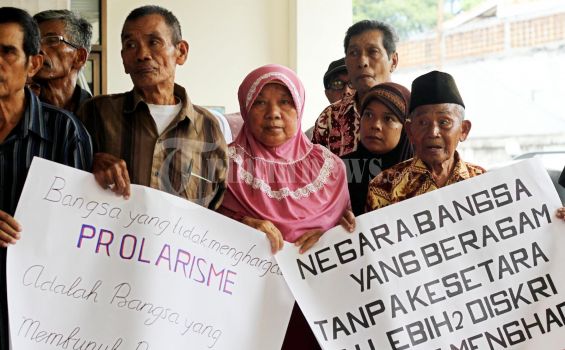 Bangsa yang tidak menghargai
PROLARISME
Adalah Bangsa yang
Membunuh
NEGARA, BANGSA
YANG BERAGAM
TANPA KESETARA
LEBIH2 DISKRI
MENGHAR